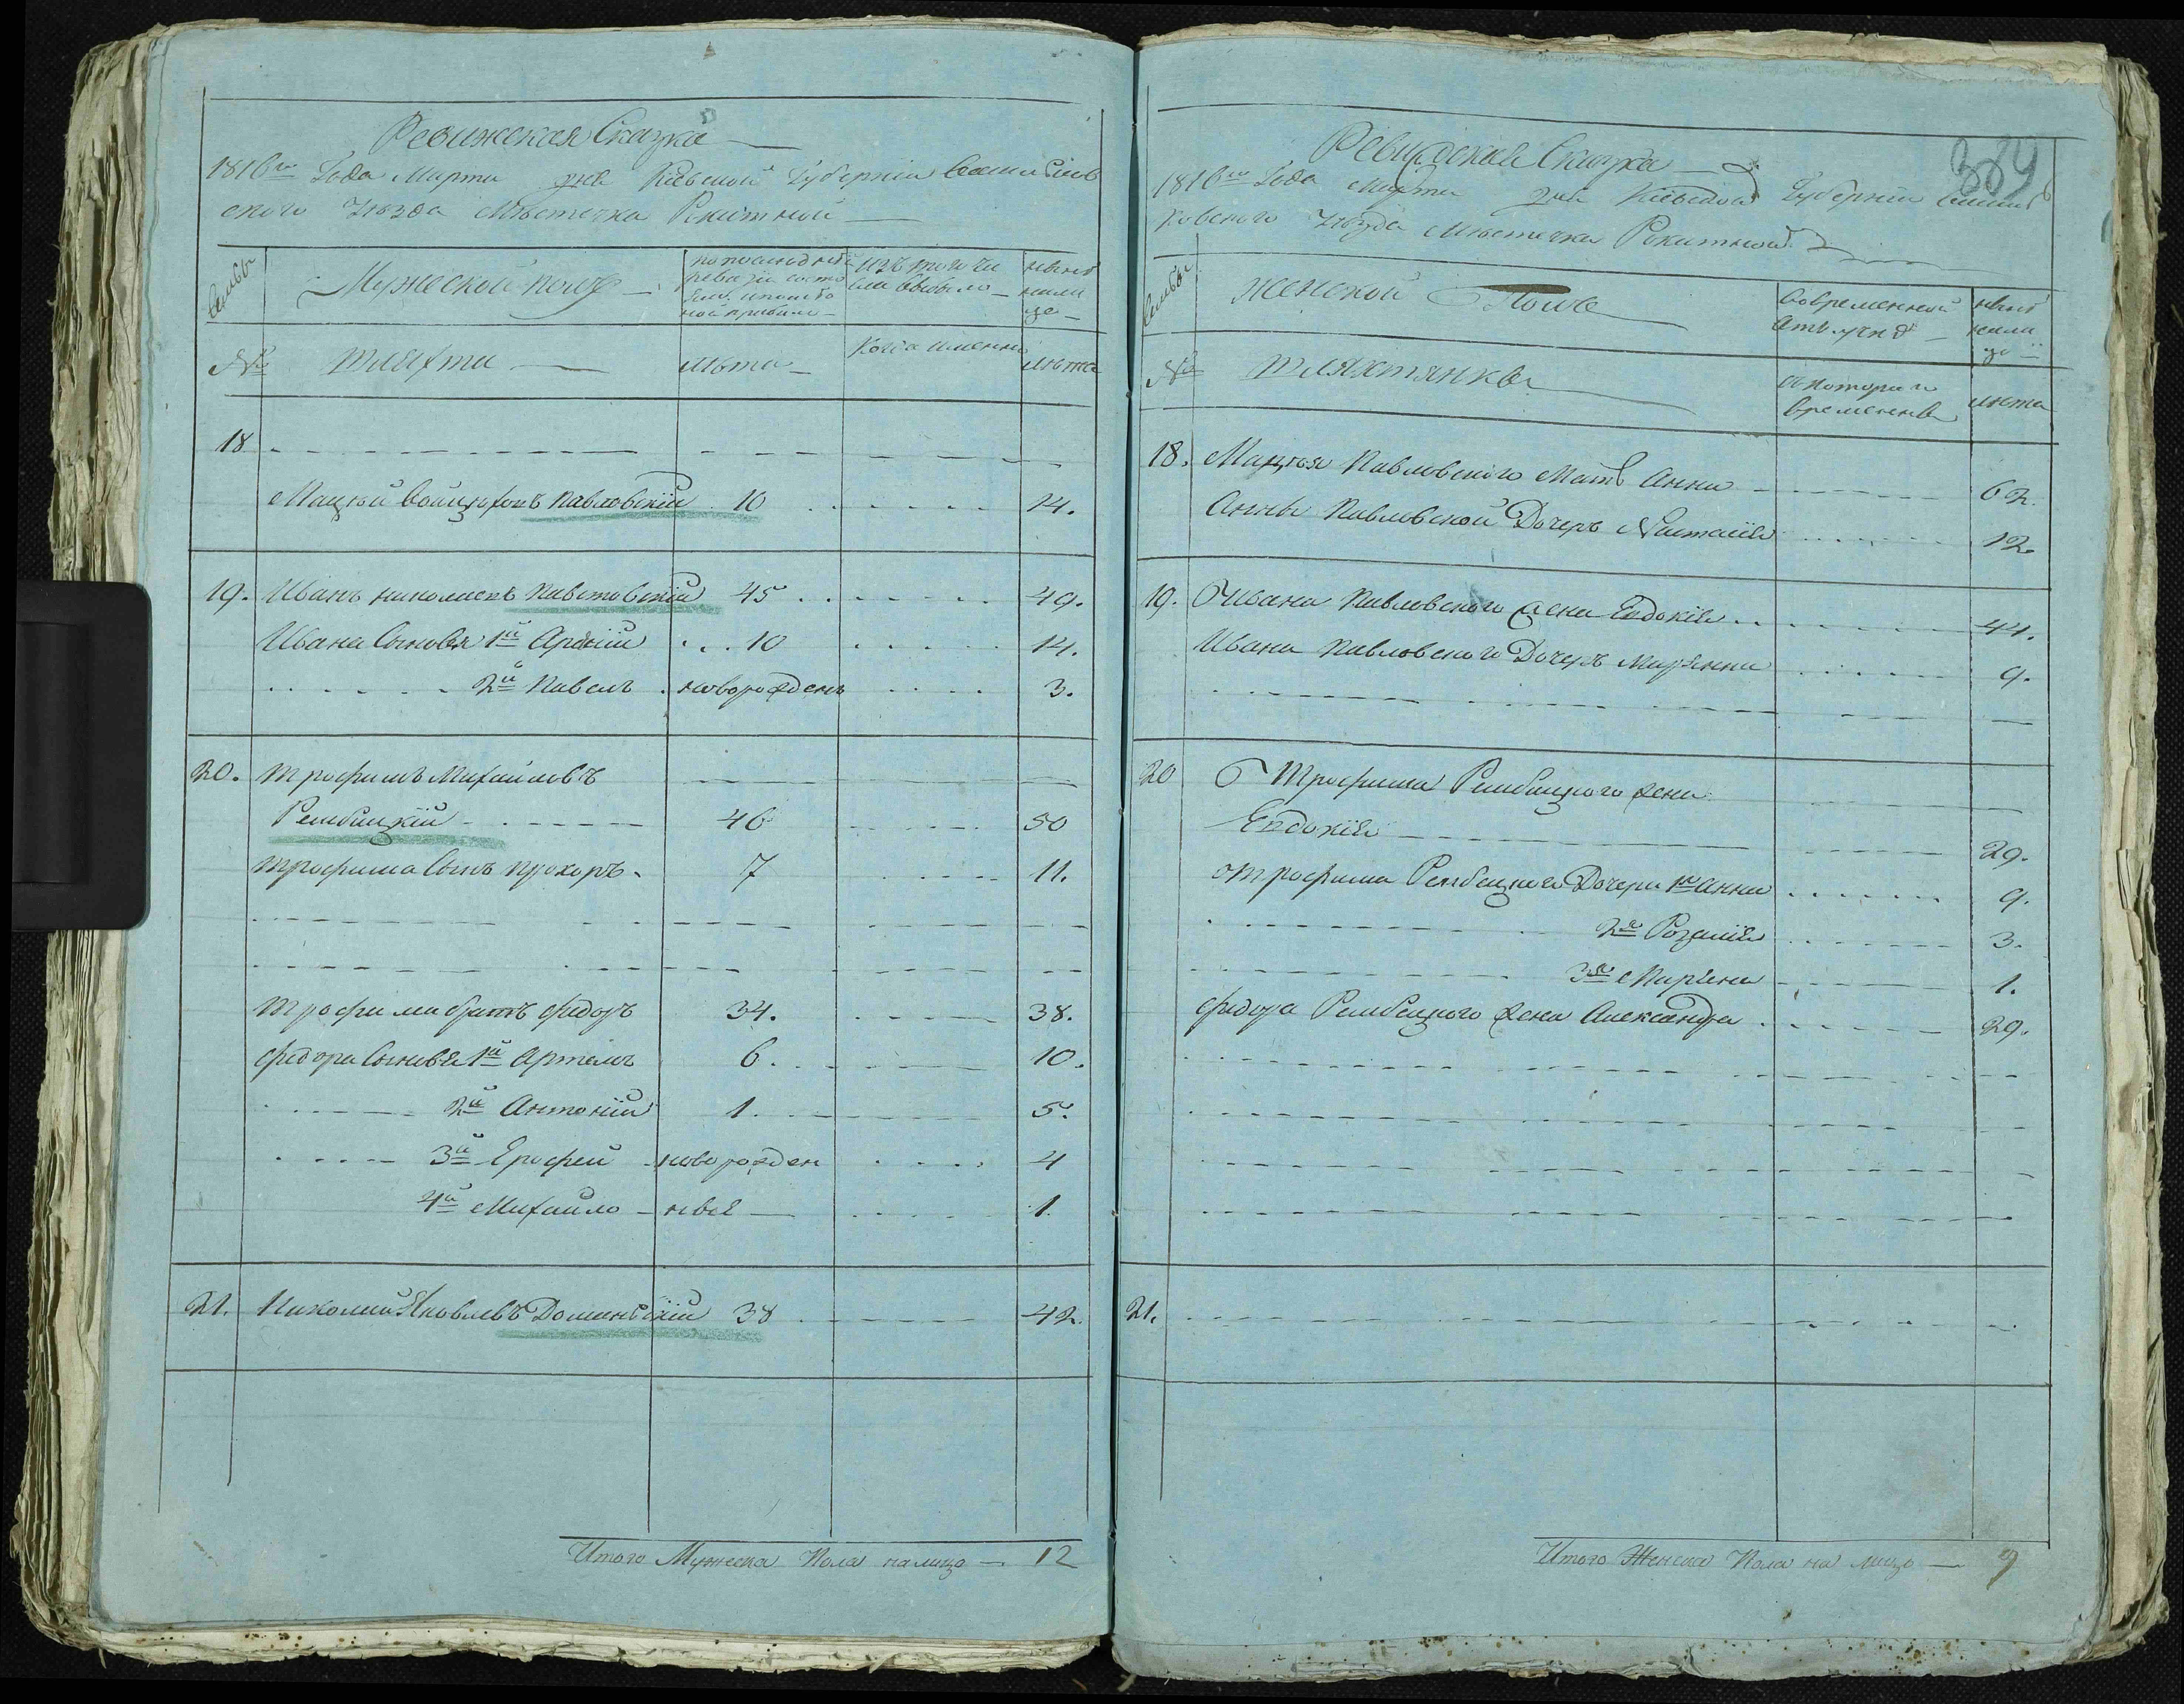 Ревижская Сказка
1816го Года Марта дня Киевской Губернии Васильков
ского Уезда Местечка Рокитной
Семьи
Мужеской полъ
по последней ревизии состо
яло и после
того прибыло
изъ того чи
сла выбыло
ныне
нали
цо
№
Шляхта
лета
Когда именно
лета
18
Мацей Войцеховъ Павловский 10 14.
19. Иванъ Николаевъ Павловский 45 49.
Ивана Сыновья 1й 10 14.
2й Павелъ новорожденъ 3.
20. Трофимъ Михайловъ
Рембицкий 46 50
Трофима Сынъ Прохоръ 7 11.
Трофима братъ Федоръ 34. 38.
Федора Сыновья 1й Артемъ 6. 10.
2й Антоний 1. 5.
3й Ерофей новорожден 4
4й Михайло 1.
21. Николай Яковлевъ Доминский 38 42.
Итого Мужеска Пола налицо — 12
389
Ревижская Сказка
1816го Года Марта дня Киевской Губернии Василь
ковского Уезда Местечка Рокитной
Семьи
Женской Полъ
Во временной
отлучке
ныне
нали
цо
№
Шляхтянки
съ которого
времени
лета
18. Мацея Павловского Мать Анна 62.
Анны Павловской Дочерь Настасия 12.
19. Ивана Павловского жена Евдокия 44.
Ивана Павловского Дочерь Марянна 9.
20 Трофима Рембицкого жена
Евдокия 29.
Трофима Рембицкого Дочери 1я Анна 9.
2я Розалия 3.
3я Марьена 1.
Федора Рембицкого жена Александра 29.
21.
Итого Женска Пола на лицо — 9